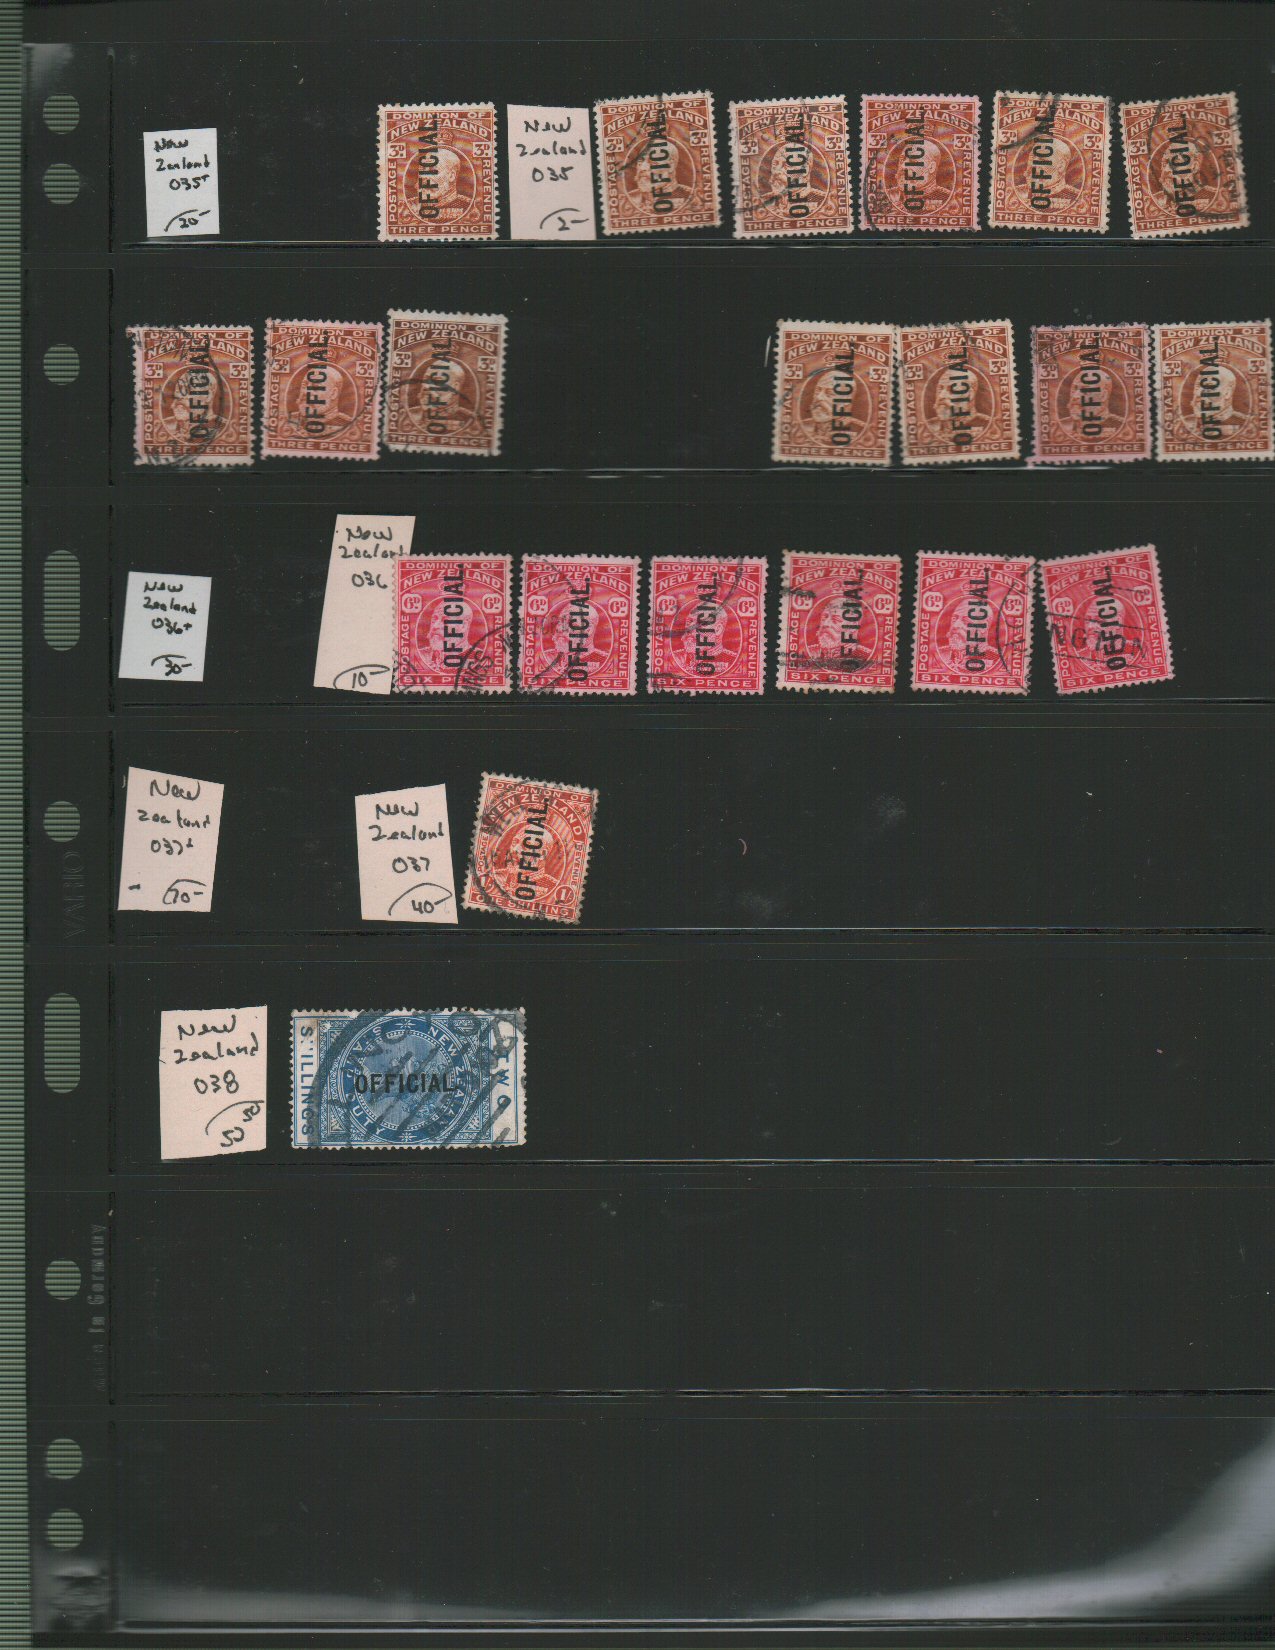 New
Zealand
035+
20-
DOMINION OF
NEW ZEALAND
3D 3D
POSTAGE
REVENUE
THREE PENCE
OFFICIAL.
New
Zealand
035
2-
DOMINION OF
NEW ZEALAND
3D 3D
POSTAGE
REVENUE
THREE PENCE
OFFICIAL.
DOMINION OF
NEW ZEALAND
3D 3D
POSTAGE
REVENUE
THREE PENCE
OFFICIAL.
DOMINION OF
NEW ZEALAND
3D 3D
POSTAGE
REVENUE
THREE PENCE
OFFICIAL.
DOMINION OF
NEW ZEALAND
3D 3D
POSTAGE
REVENUE
THREE PENCE
OFFICIAL.
DOMINION OF
NEW ZEALAND
3D 3D
POSTAGE
REVENUE
THREE PENCE
OFFICIAL.
DOMINION OF
NEW ZEALAND
3D 3D
POSTAGE
REVENUE
THREE PENCE
OFFICIAL.
DOMINION OF
NEW ZEALAND
3D 3D
POSTAGE
REVENUE
THREE PENCE
OFFICIAL.
DOMINION OF
NEW ZEALAND
3D 3D
POSTAGE
REVENUE
THREE PENCE
OFFICIAL.
DOMINION OF
NEW ZEALAND
3D 3D
POSTAGE
REVENUE
THREE PENCE
OFFICIAL.
DOMINION OF
NEW ZEALAND
3D 3D
POSTAGE
REVENUE
THREE PENCE
OFFICIAL.
DOMINION OF
NEW ZEALAND
3D 3D
POSTAGE
REVENUE
THREE PENCE
OFFICIAL.
DOMINION OF
NEW ZEALAND
3D 3D
POSTAGE
REVENUE
THREE PENCE
OFFICIAL.
New
Zealand
036+
30-
New
Zealand
036
10-
DOMINION OF
NEW ZEALAND
6D 6D
POSTAGE
REVENUE
SIX PENCE
OFFICIAL.
DOMINION OF
NEW ZEALAND
6D 6D
POSTAGE
REVENUE
SIX PENCE
OFFICIAL.
DOMINION OF
NEW ZEALAND
6D 6D
POSTAGE
REVENUE
SIX PENCE
OFFICIAL.
DOMINION OF
NEW ZEALAND
6D 6D
POSTAGE
REVENUE
SIX PENCE
OFFICIAL.
DOMINION OF
NEW ZEALAND
6D 6D
POSTAGE
REVENUE
SIX PENCE
OFFICIAL.
DOMINION OF
NEW ZEALAND
6D 6D
POSTAGE
REVENUE
SIX PENCE
OFFICIAL.
New
Zealand
037+
70-
New
Zealand
037
40-
DOMINION OF
NEW ZEALAND
POSTAGE
REVENUE
1/-
ONE SHILLING
OFFICIAL.
VARIO
New
Zealand
038
50
50
TWO
SHILLINGS
NEW ZEALAND
STAMP
DUTY
OFFICIAL.
Made in Germany